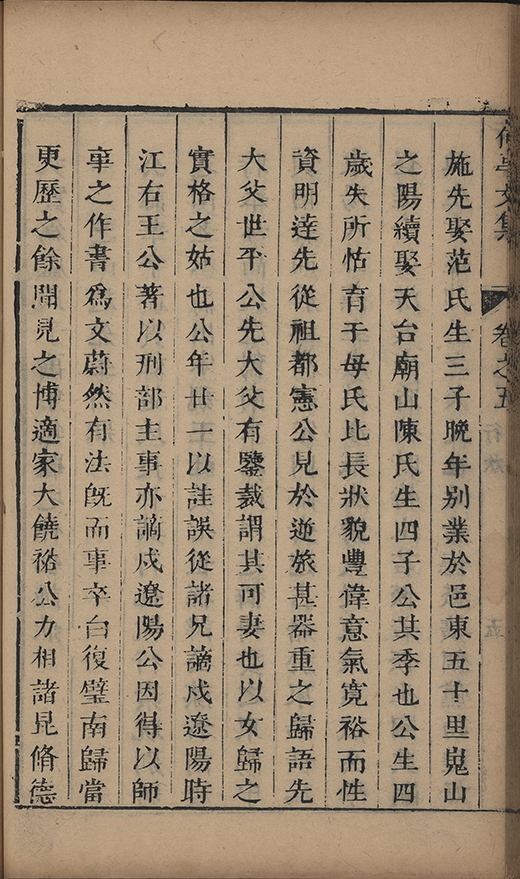 文集 卷之五
施先娶范氏生三子晚年別業於邑東五十里嵬山
之陽續娶天台廟山陳氏生四子公其季也公生四
歲失所怙育于母氏比長狀貌豐偉意氣寬裕而性
資明達先從祖都憲公見於逆旅甚器重之歸語先
大父世平公先大父有鑒裁謂其可妻也以女歸之
實格之姑也公年廿一以詿誤從諸兄謫戍遼陽時
江右王公著以刑部主事亦謫戍遼陽公因得以師
事之作書爲文蔚然有法旣而事卒白復璧南歸當
更歷之餘聞見之博適家大饒裕公力相諸昆脩德